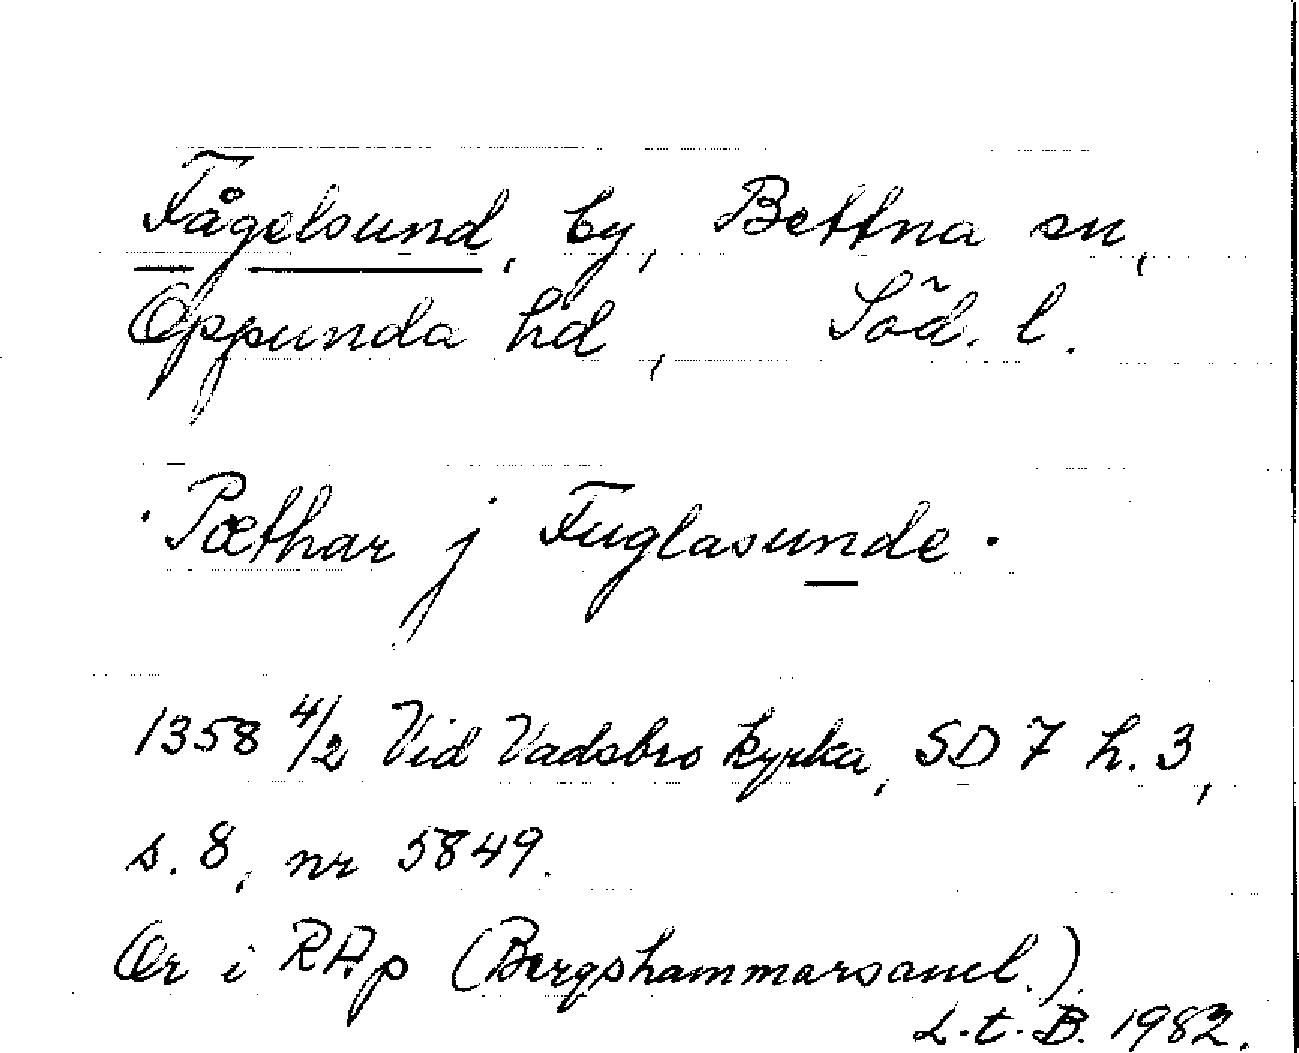 Fågelsund, by, Bettna sn,
Oppunda hd, Söd. l.
· Pæthar j Fuglasunde ·
1358 4/2 Vid Vadsbro kyrka, SD 7 h. 3,
s. 8, nr 5849.
Or i RAp (Bergshammarsaml.)
L.t.B. 1982.